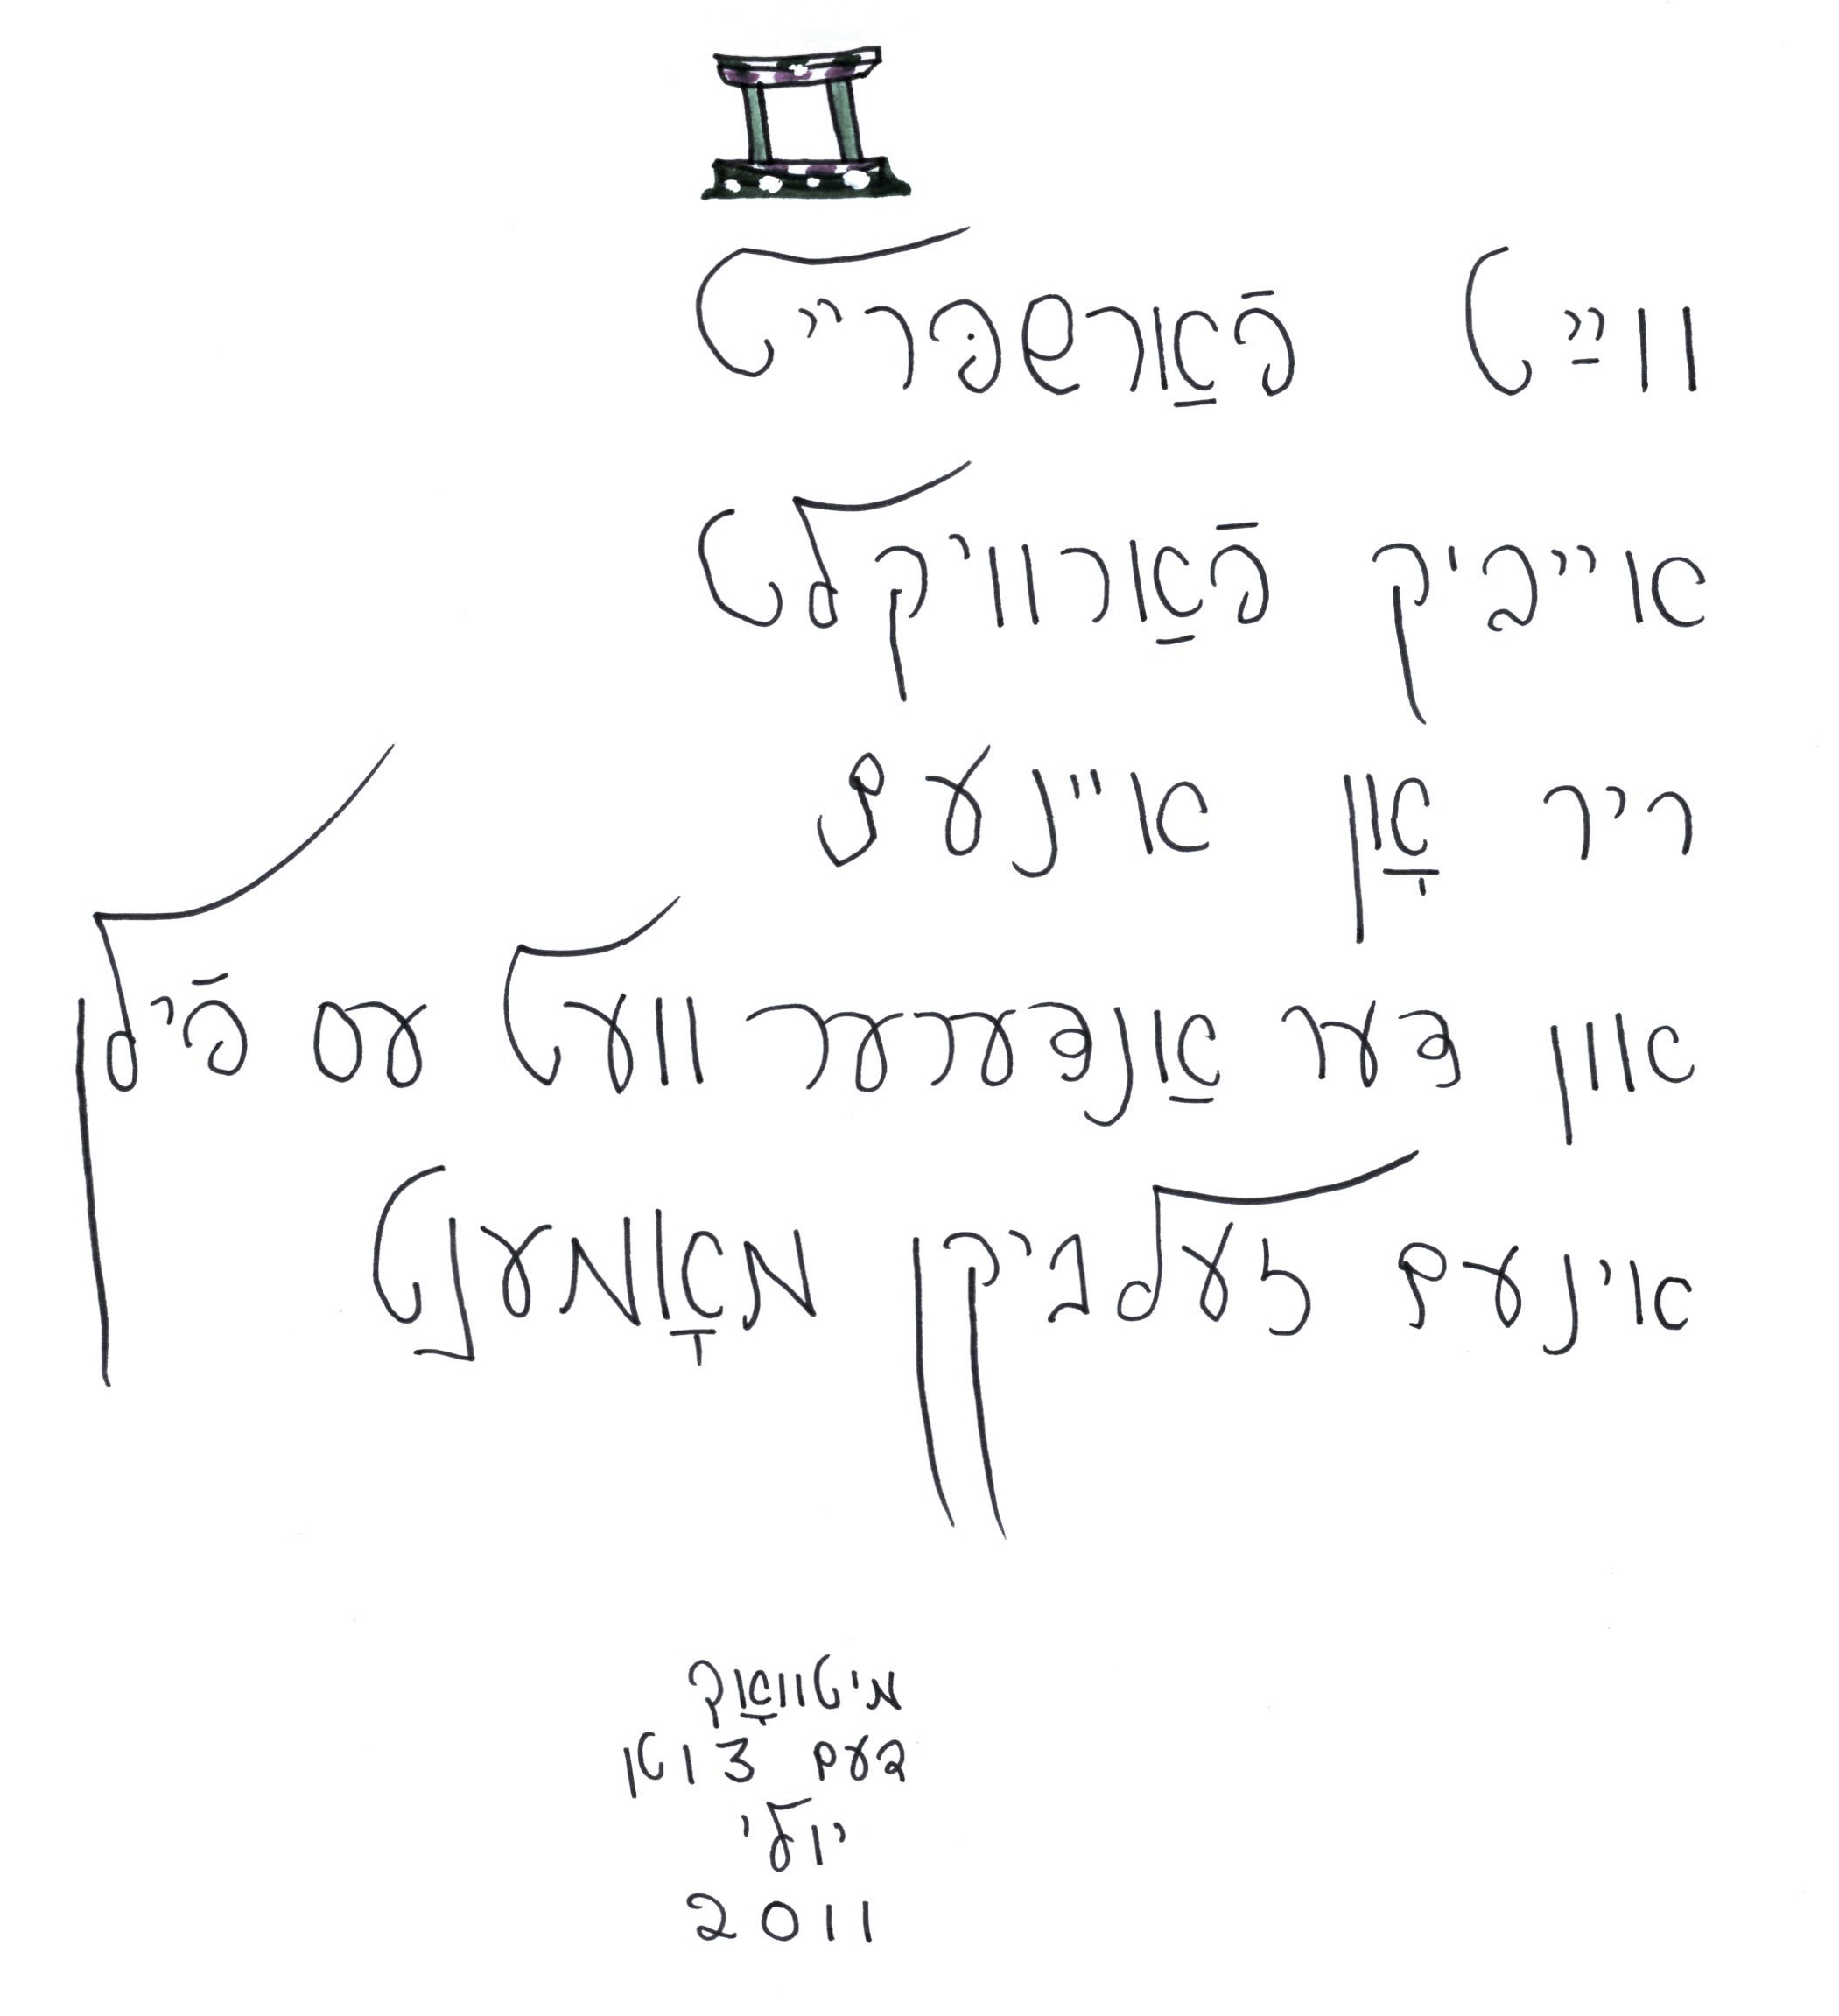 ווײַט פֿאַרשפּרייט
אייביק פֿאַרוויקלט
ריר אָן איינעם
און דער אַנדערער וועט עס פֿילן
אינעם זעלביקן מאָמענט
מיטוואָך
דעם 13טן
יולי
2011